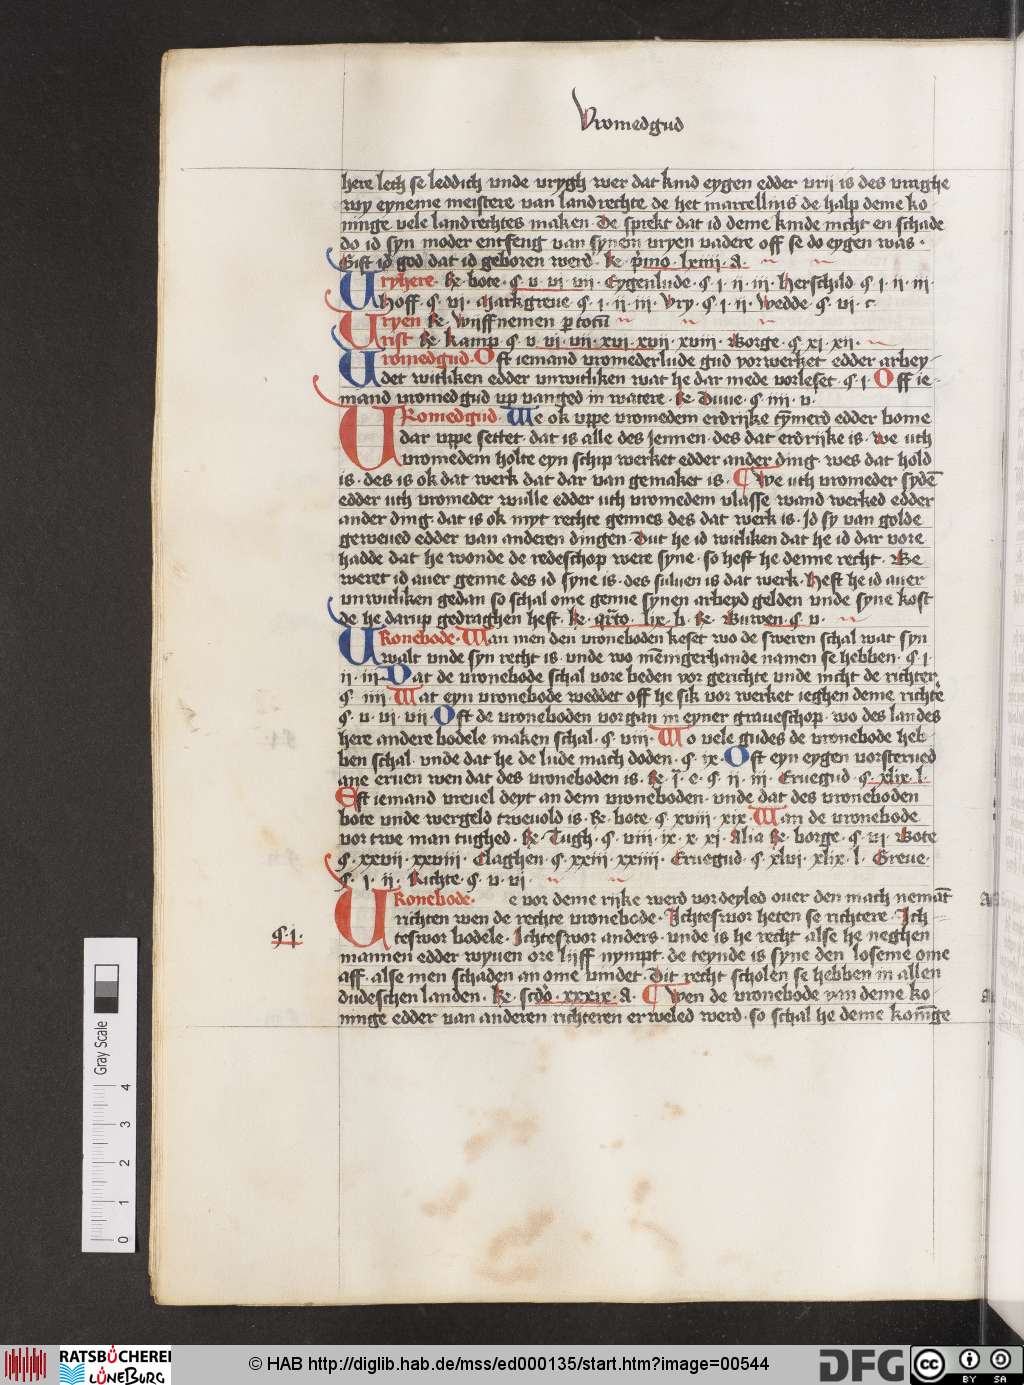 Vromedgud
here leth se leddich vnde vrygh wer dat kind eygen edder vrij is des vraghe
wy eyneme meistere van landrechte de het marcellius de halp deme ko-
ninge vele landrechtes maken. De sprekt dat id deme kinde nicht en schade
do id syn moder entfeng van synem vryen vadere off se do eygen was.
Gift id god dat id geboren werd. Re. pimo. lxiiii. a.
Vryhere. Re. bote. ꝯ. v. vi. vii. Eygenlude. ꝯ. i. ii. iii. Herschild. ꝯ. i. ii. iii.
Hoff. ꝯ. vi. Markgreue. ꝯ. i. ii. iii. Vry. ꝯ. i. ii. Wedde. ꝯ. vi. c
Vryen Re. Wijff nemen p totu
Vrist Re. kamp. ꝯ. v. vi. vii. xvi. xvii. xviii. Borge. ꝯ. xi. xii.
Vromedgud. Oft iemand vromederlude gud vorwerket edder arbey-
det witliken edder vnwitliken wat he dar mede vorleset. ꝯ. i. Off ie-
mand vromedgud vp vanged in watere. Re. Duue. ꝯ. iiii. v.
VRomedgud. We ok vppe vromedem erdrijke tymerd edder bome
dar vppe settet. dat is alle des jennen. des dat erdrijke is. We vth
vromedem holte eyn schip werket edder ander ding. wes dat hold
is. des is ok dat werk dat dar van gemaket is. We vth vromeder syde
edder vth vromeder wulle edder vth vromedem vlasse wand werked edder
ander ding. dat is ok myt rechte gennes des dat werk is. Id sy van golde
geweued edder van anderen dingen. Dut he id witliken dat he id dar vore
hadde dat he wonde de redeschop were syne. so heft he denne recht. Be
weret id auer genne des id syne is. des suluen is dat werk. Heft he id auer
vnwitliken gedan so schal ome genne synen arbeyd gelden vnde syne kost
de he darup gedraghen heft. Re. qrto. lix. b. Re. Buwen. ꝯ. v.
VRonebode. Wan men den vroneboden keset wo de sweren schal wat syn
walt vnde syn recht is. vnde wo menigerhande namen se hebben. ꝯ. i.
ii. iii. Dat de vronebode schal vore beden vor gerichte vnde nicht de richter.
ꝯ. iiii. Wat eyn vronebode weddet off he sik vor werket ieghen deme richte
ꝯ. v. vi. vii. Oft de vroneboden vorgan in eyner graueschop. wo des landes
here andere bodele maken schal. ꝯ. viii. Wo vele gudes de vronebode heb-
ben schal. vnde dat he de lude mach doden. ꝯ. ix. Oft eyn eygen vorsterued
ane eruen wen dat des vroneboden is. Re. i. e. ꝯ. ii. iii. Eruegud. ꝯ. xlix. l.
Eft iemand vreuel deyt an dem vroneboden. vnde dat des vroneboden
bote vnde wergeld twevold is. Re. bote. ꝯ. xviii. xix. Wan de vronebode
vor twe man tughed. Re. Tugh. ꝯ. viii. ix. x. xi. Alia Re. borge. ꝯ. vi. Bote
ꝯ. xxvii. xxviii. Claghen. ꝯ. xxiii. xxiiii. Eruegud. ꝯ. xlvi. xlix. l. Greue.
ꝯ. i. ii. Richte. ꝯ. v. vi.
VRonebode. e vor deme rijke werd vordeyled ouer den mach nemat
richten wen de rechte vronebode. Ichteswor heten se richtere. Ich-
teswor bodele. Ichteswor anders. vnde is he recht alse he neghen
ꝯ. i.
mannen edder wyuen ore lijff nympt. de teynde is syne den loseme ome
aff. alse men schaden an ome vindet. Dit recht scholen se hebben in allen
dudeschen landen. Re. scdo. xxxix. a. Wen de vronebode van deme ko-
ninge edder van anderen richteren erweled werd. so schal he deme koninge
Gray Scale
0 1 2 3 4
RATSBÜCHEREI
LÜNEBURG
© HAB http://diglib.hab.de/mss/ed000135/start.htm?image=00544
DFG
cc
BY SA